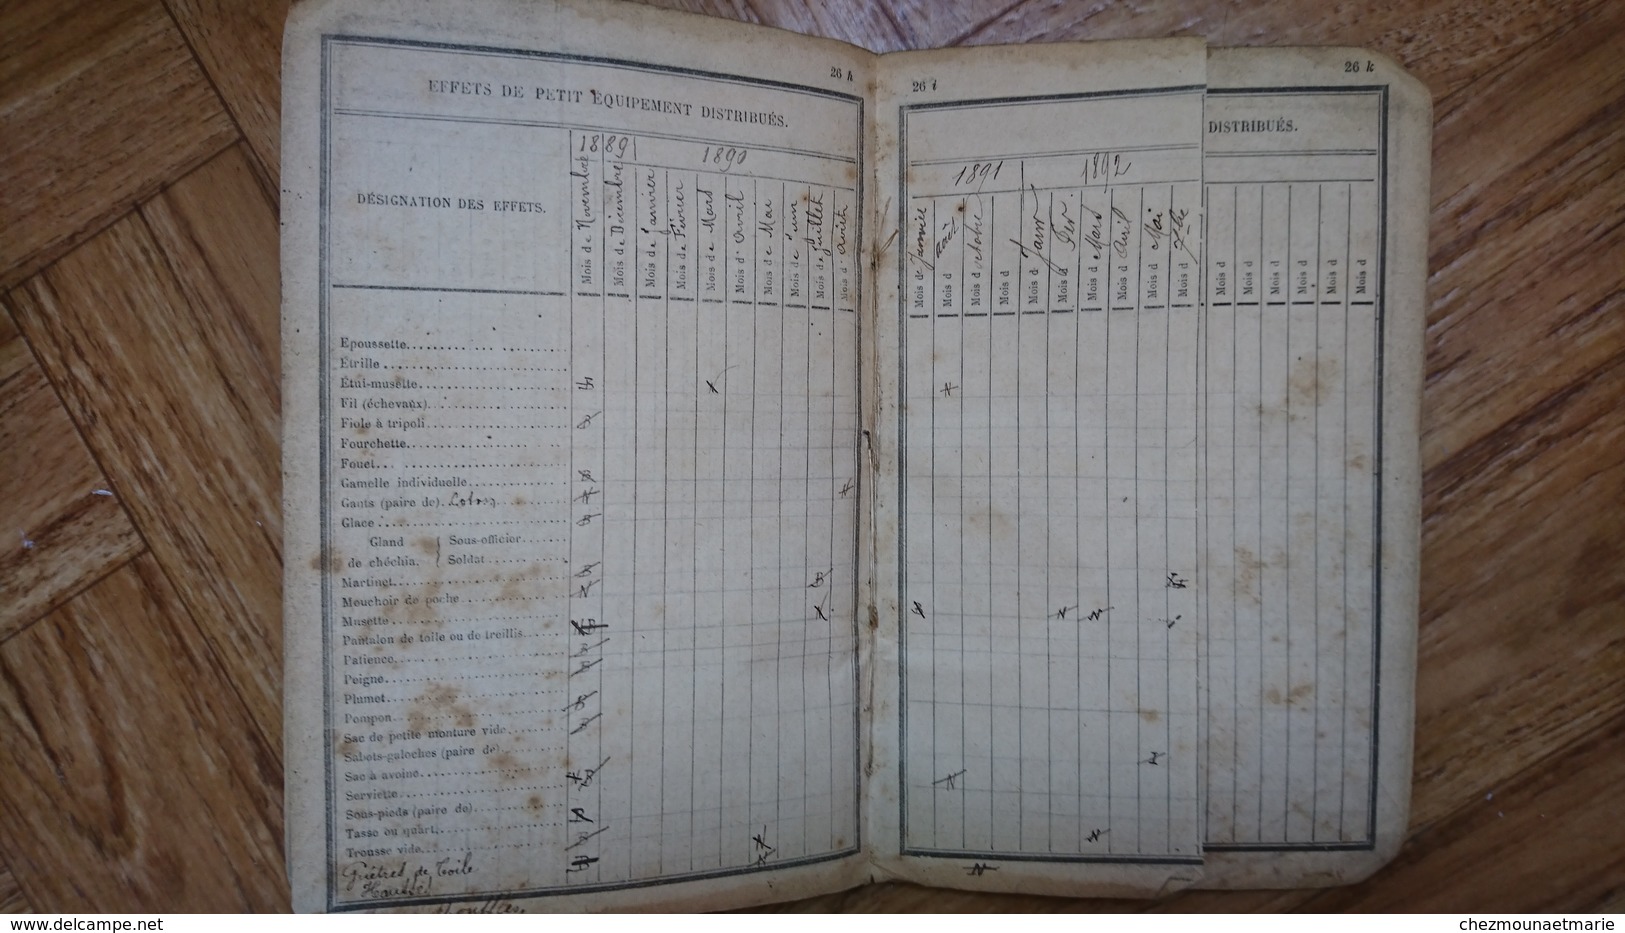 26 h
EFFETS DE PETIT ÉQUIPEMENT DISTRIBUÉS.
DÉSIGNATION DES EFFETS.
1889
1890
Mois de Novembre
Mois de Décembre
Mois de Janvier
Mois de Février
Mois de Mars
Mois d'Avril
Mois de Mai
Mois de Juin
Mois de Juillet
Mois d'
Epoussette
Étrille
Étui-musette
Fil (échevaux)
Fiole à tripoli
Fourchette
Fouet
Gamelle individuelle
Gants (paire de). Coton
Glace
Gland de chéchia. { Sous-officier
Soldat
Martinet
Mouchoir de poche
Musette
Pantalon de toile ou de treillis
Patience
Peigne
Plumet
Pompon
Sac de petite monture vide
Sabots-galoches (paire de)
Sac à avoine
Serviette
Sous-pieds (paire de)
Tasse ou quart
Trousse vide
Guêtres de Toile
26 i
1891
1892
Mois de Janvier
Mois d août
Mois d octobre
Mois d
Mois d Janv
Mois d Fev.
Mois d Mars
Mois d Avril
Mois d Mai
Mois d 7bre
26 k
DISTRIBUÉS.
Mois d
Mois d
Mois d
Mois d
Mois d
Mois d
www.delcampe.net
chezmounaetmarie